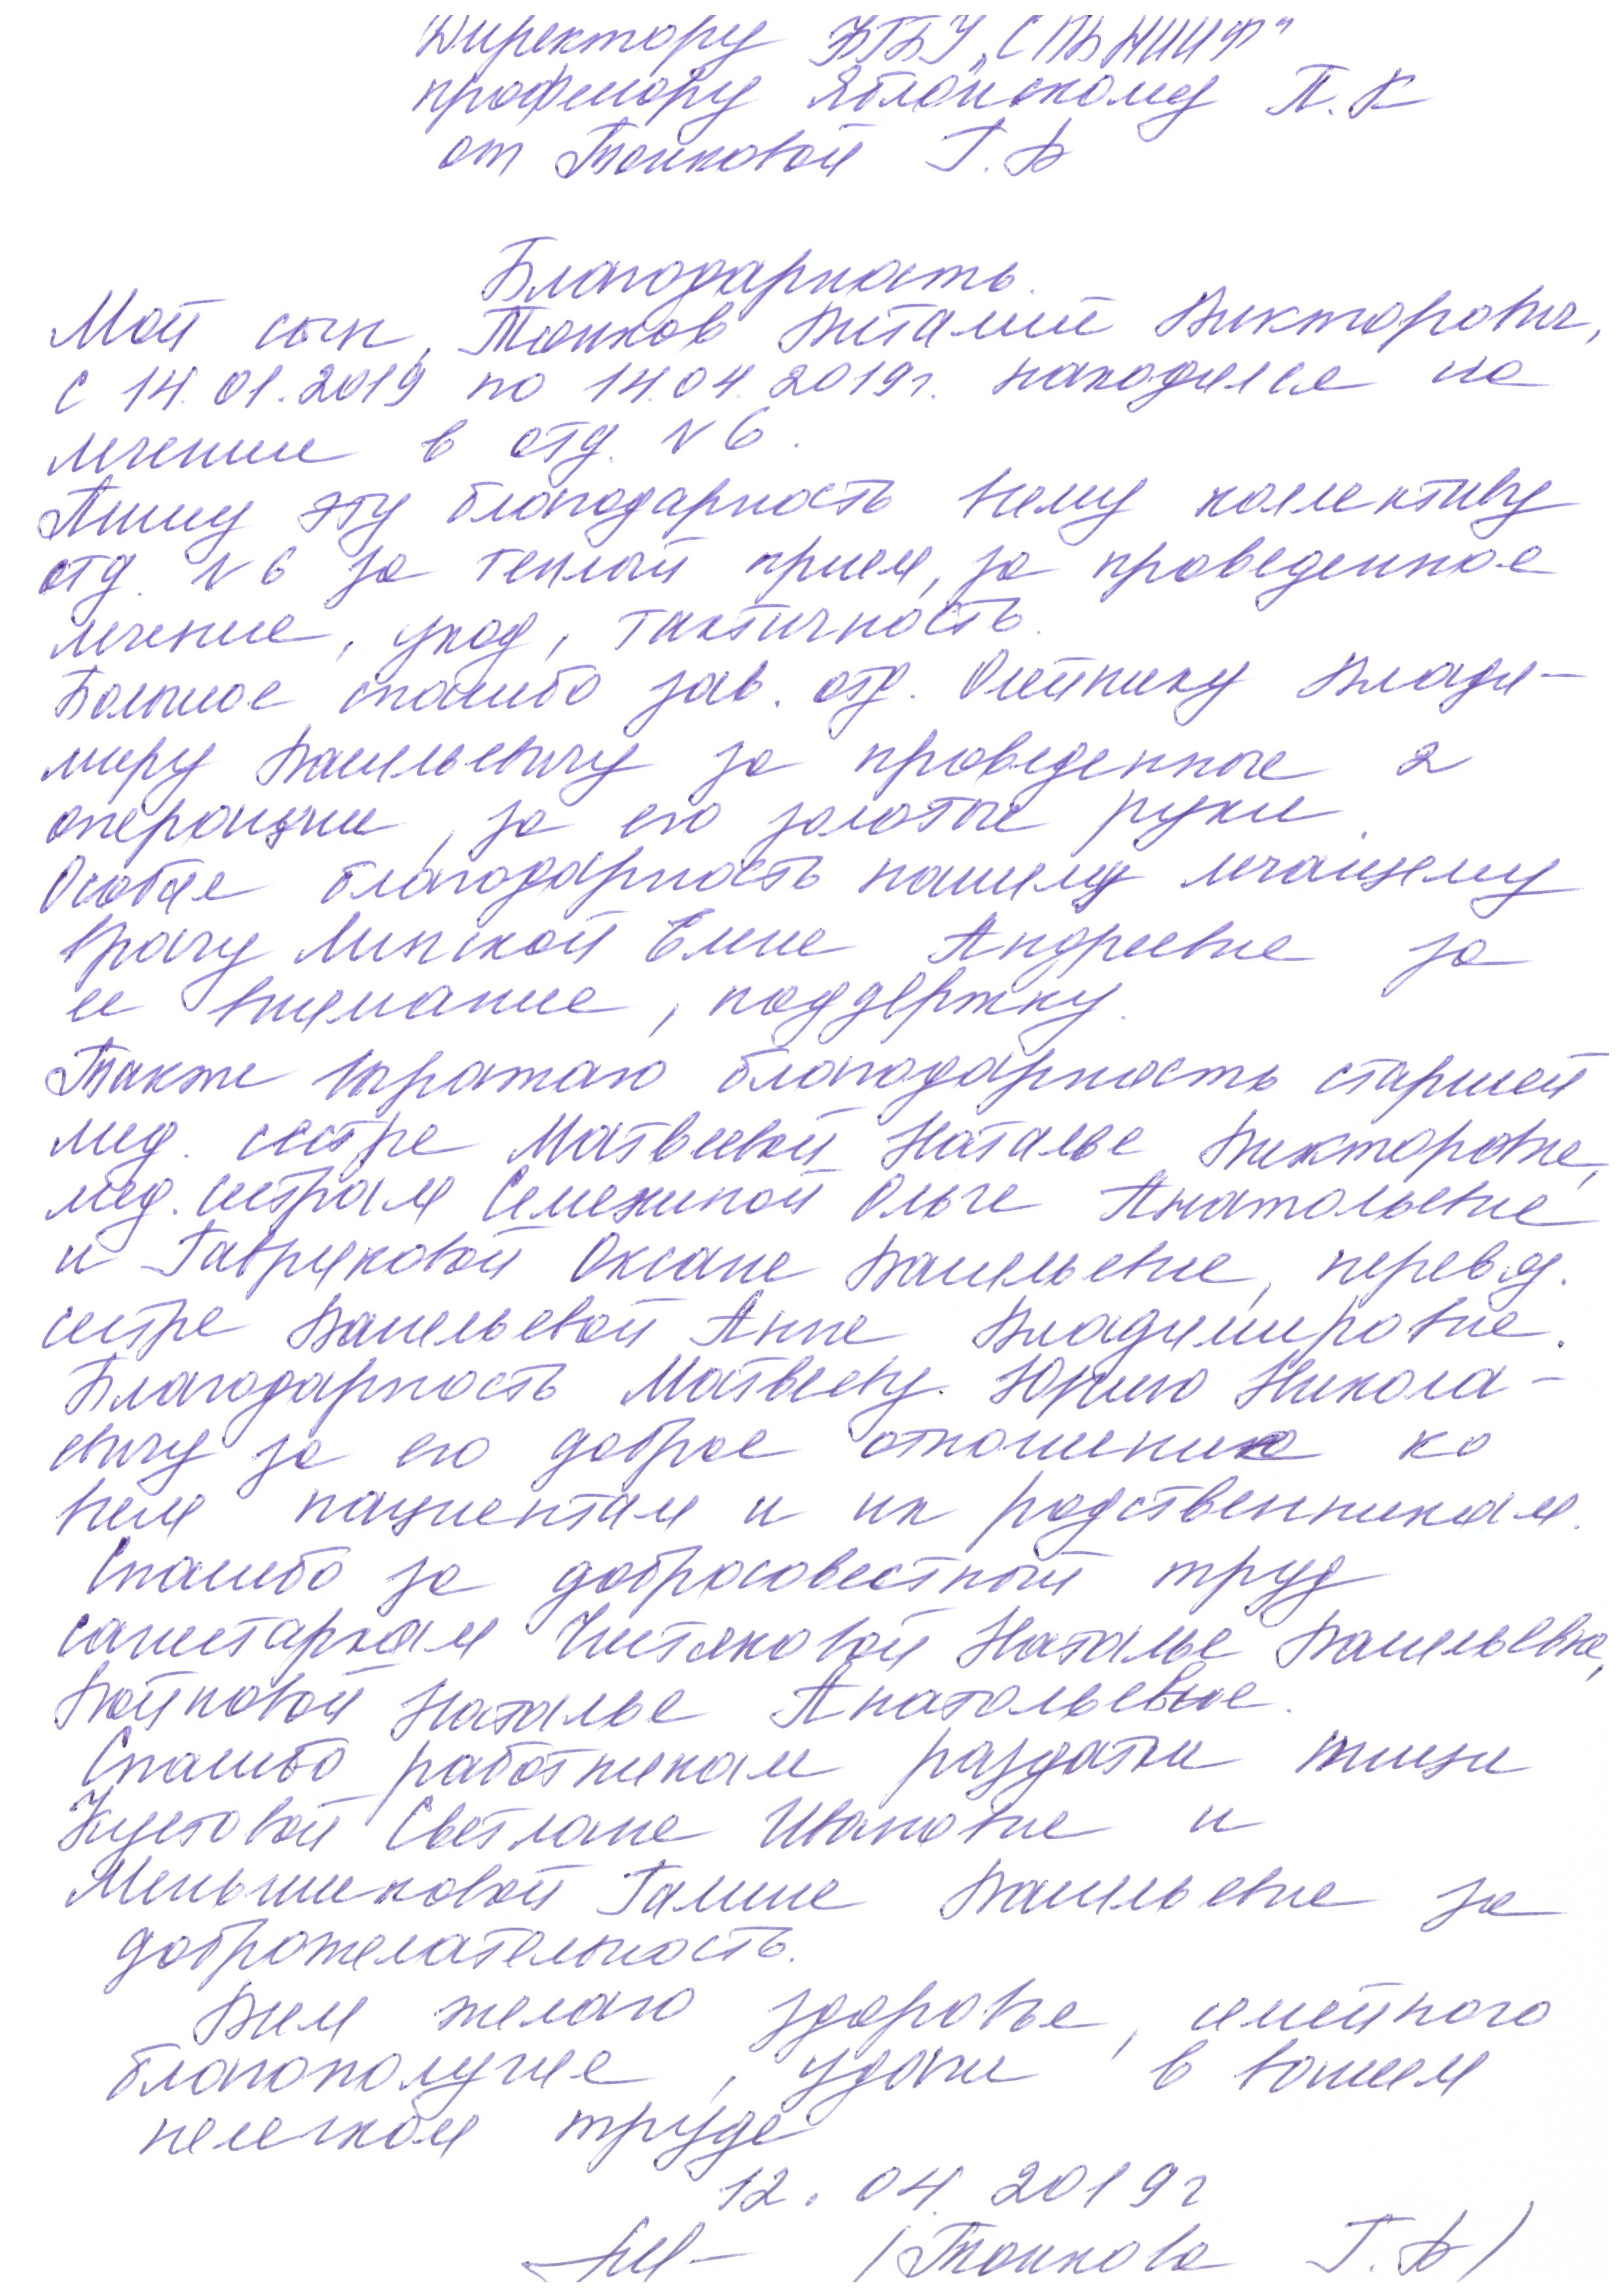 Директору ФГБУ „СПБНИИФ"
професору Яблонскому П.К
от Тонковой Г.В
Благодарность.
Мой сын, Тонков Виталий Викторович,
с 14.01.2019 по 14.04.2019г. находился на
лечение в отд. N 6.
Пишу эту благодарность всему коллективу
отд. N 6 за теплый прием, за проведенное
лечение, уход, тактичность.
Большое спасибо зав. отд. Олейнику Влади-
миру Васильевичу за проведенные 2
операции, за его золотые руки.
Особая благодарность нашему лечащему
врачу Минской Елене Андреевне за
ее внимание, поддержку.
Также выражаю благодарность старшей
мед. сестре Матвеевой Наталье Викторовне,
мед. сестрам Ольге Анатольевне
и Гавриковой Оксане Васильевне, перевяз.
сестре Васильевой Анне Владимировне.
Благодарность Матвееву Юрию Никола-
евичу за его доброе отношение ко
всем пациентам и их родственникам.
Спасибо за добросовестный труд
санитаркам Чистяковой Наталье Васильевне,
Войновой Наталье Анатольевне.
Спасибо работникам раздатки пищи
Светлане Ивановне и
Меньшиковой Галине Васильевне за
доброжелательность.
Всем желаю здоровье, семейного
благополучие, удачи в вашем
нелегком труде
12.04.2019г
(Тонкова Г.В)